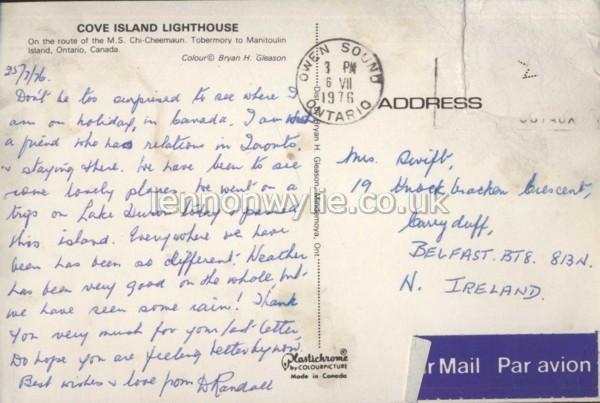 COVE ISLAND LIGHTHOUSE
On the route of the M.S. Chi-Cheemaun. Tobermory to Manitoulin
Island, Ontario, Canada.
Colour© Bryan H. Gleason
25/7/76.
Don't be too surprised to see where I
am on holiday, in Canada. I am with
a friend who has relations in Toronto,
& staying there. We have been to see
some lovely places. We went on a
trip on Lake Huron today & passed
this island. Everywhere we have
been has been so different. Weather
has been very good on the whole, but
we have seen some rain! Thank
you very much for your last letter,
Do hope you are feeling better by now.
Best wishes & love from D Randall
OWEN SOUND
3 PM
6 VII
1976
ONTARIO
Bryan H. Gleason, Mindemoya, Ont.
Plastichrome®
by COLOURPICTURE
Made in Canada
ADDRESS
Mrs. Swift,
19 Knockbracken Crescent,
Carryduff,
BELFAST. BT8. 8
N. IRELAND.
Mail Par avion
lennonwylie.co.uk